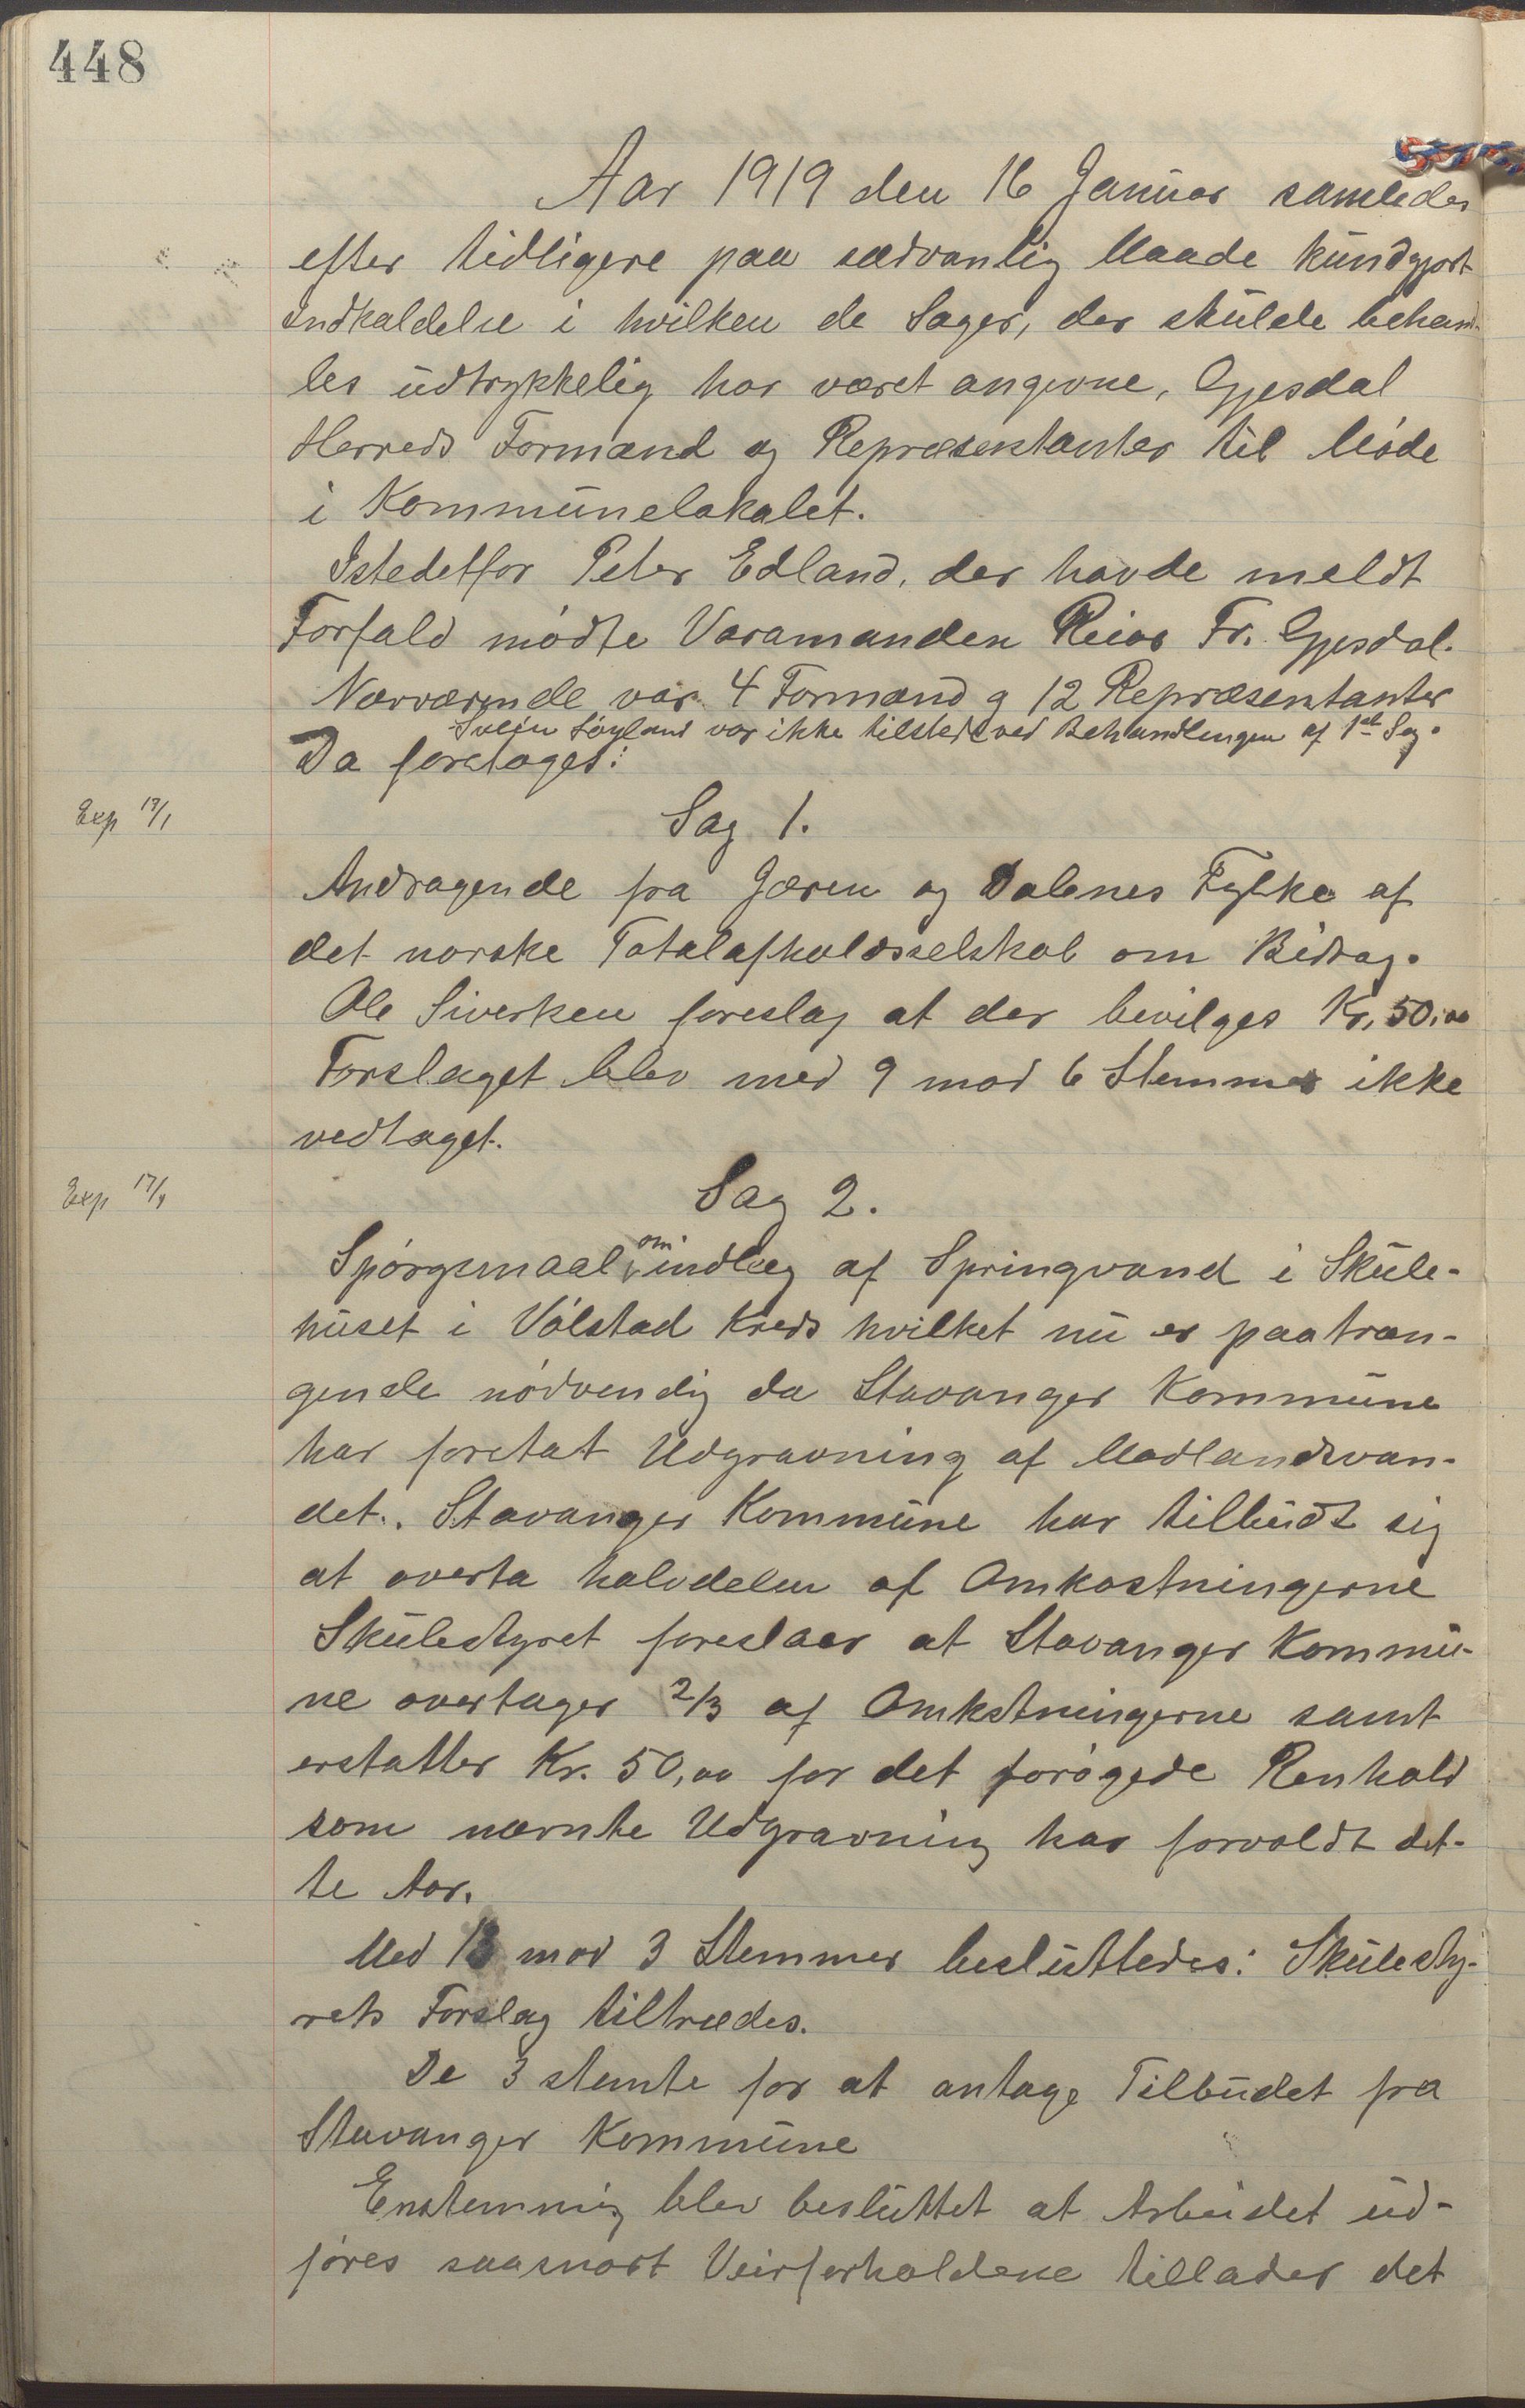 448
Aar 1919 den 16 Januar samledes
efter tidligere paa sædvanlig Maade kundgjort
Indkaldelse i hvilken de Sager, der skulde behand-
les udtrykkelig har været angivne, Gjesdal
Herreds Formænd og Repræsentanter til Møde
i Kommunelokalet.
Istedetfor Peter Edland, der havde meldt
Forfald mødte Varamanden Reiar Fr. Gjesdal.
Nærværende var 4 Formænd og 12 Repræsentanter
Svein Søyland var ikke tilstede ved Behandlingen af 1ste Sag.
Da foretoges:
Exp 17/1
Sag 1.
Andragende fra Jæren og Dalenes Fylke af
det norske Totalafholdsselskab om Bidrag.
Ole Sivertsen foreslog at der bevilges Kr. 50,00
Forslaget blev med 9 mod 6 Stemmer ikke
vedtaget.
Exp 17/1
Sag 2.
Spørgsmaal om indlæg af Springvand i Skule-
huset i Vølstad Kreds hvilket nu er paatræn-
gende nødvendig da Stavanger Kommune
har foretat Udgravning af Madlandsvan-
det. Stavanger Kommune har tilbudt sig
at overta halvdelen af Omkostningerne
Skulestyret foreslaar at Stavanger Kommu-
ne overtager 2/3 af Omkstningerne samt
erstatter Kr. 50,00 for det forøgede Renhold
som nævnte Udgravning har forvoldt det-
te Aar.
Med 13 mod 3 Stemmer besluttedes: Skulesty-
rets Forslag tiltrædes.
De 3 stemte for at antage Tilbudet fra
Stavanger Kommune
Enstemmig blev besluttet at Arbeidet ud-
føres saasnart Veirforholdene tillader det